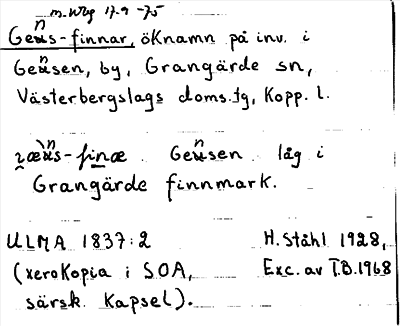 m. Wbg 17.9 -75
Gens-finnar, öKnamn på inv. i
Gensen, by, Grangärde sn,
Västerbergslags doms.tg, Kopp. l.
ȷæns-finæ. Gensen låg i
Grangärde finnmark.
ULMA 1837:2 H. Ståhl 1928,
(xeroKopia i SOA, Exc. av T.B. 1968
särsk. Kapsel).